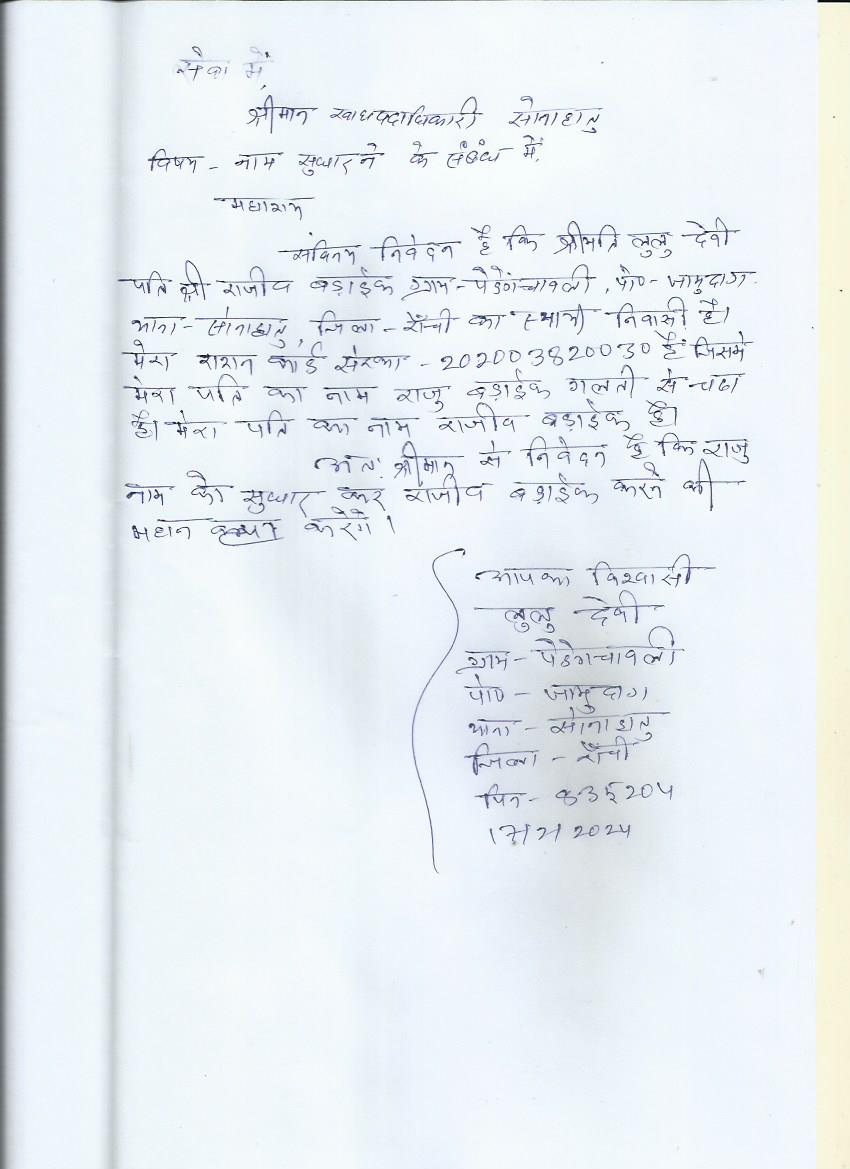 सेवा में,
श्रीमान खाधपदाधिकारी सोनाहातु
विषय - नाम सुधारने के संबंध में,
महाशय
सविनय निवेदन है कि श्रीमति लुलु देवी
पति श्री राजीव बड़ाईक ग्राम - पेडेंगचावली, पो० - जामुदाग
थाना - सोनाहातु, जिला - राँची का स्थायी निवासी है।
मेरा राशन कार्ड संख्या - 202003820030 है जिसमे
मेरा पति का नाम राजु बड़ाईक गलती से चढा
है। मेरा पति का नाम राजीव बड़ाईक है।
अतः श्रीमान से निवेदन है कि राजु
नाम को सुधार कर राजीव बड़ाईक करने की
महान कृपा करेंगे।
आपका विश्वासी
लुलु देवी
ग्राम - पेडेगचावली
पो० - जामुदाग
थाना - सोनाहातु
जिला - राँची
पिन - 835204